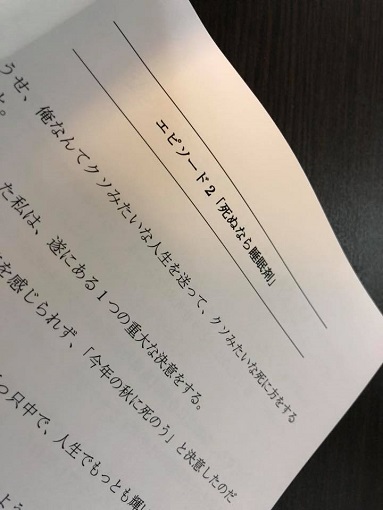 エピソード2「死ぬなら睡眠剤」
うせ、俺なんてクソみたいな人生を送って、クソみたいな死に方をする
と。
た私は、遂にある1つの重大な決意をする。
を感じられず、「今年の秋に死のう」と決意したのだ
只中で、人生でもっとも輝
よう